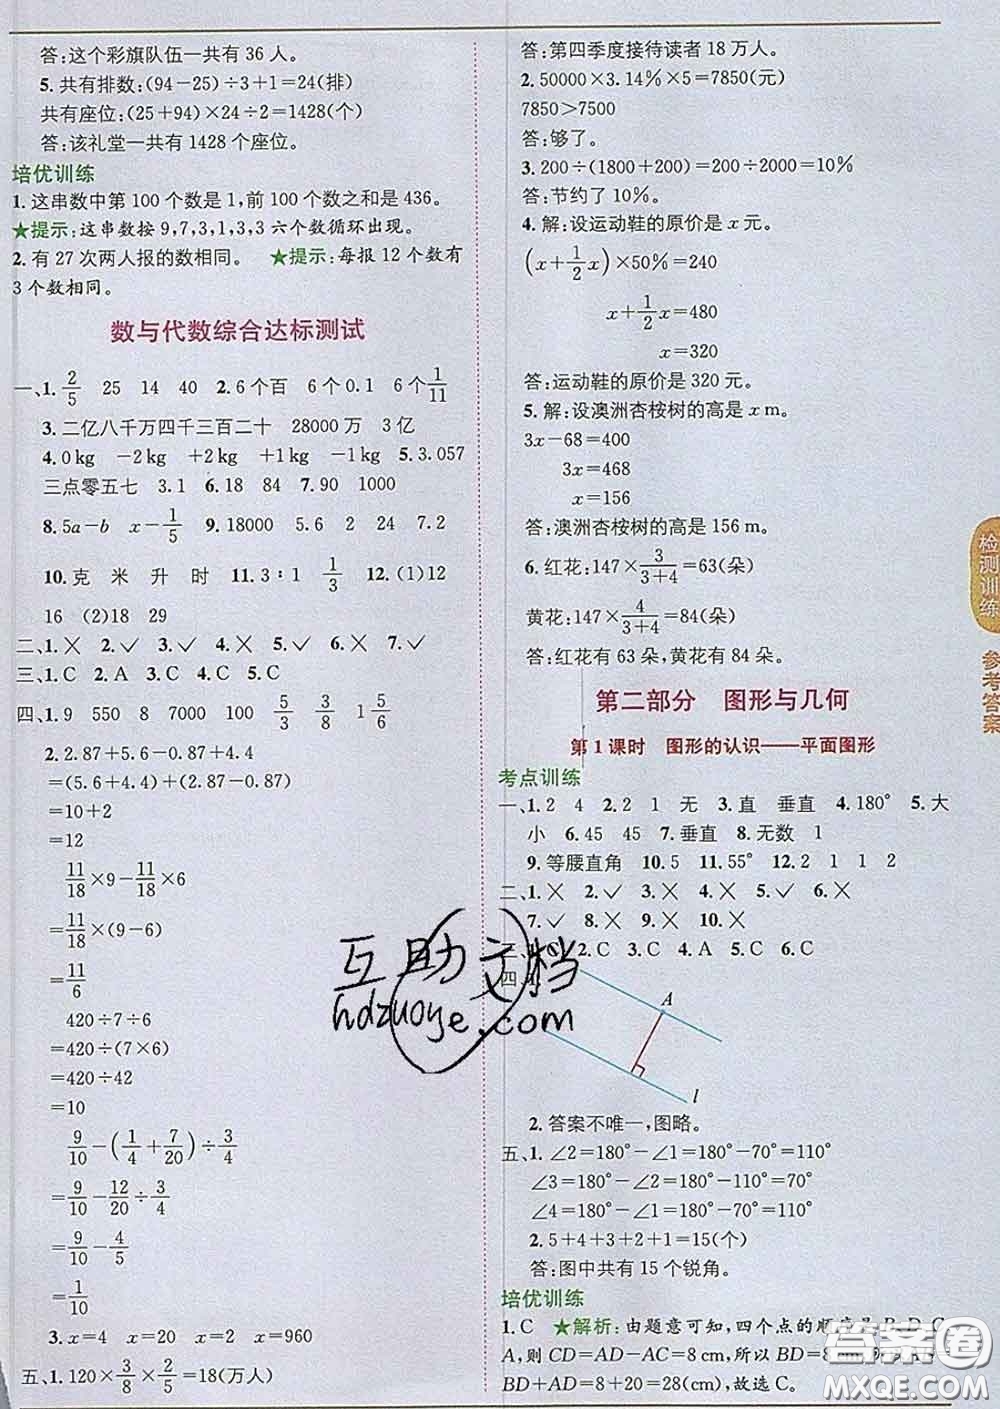 答:这个彩旗队伍一共有 36 人。
5. 共有排数:(94-25)÷3+1=24(排)
共有座位:(25+94)×24÷2=1428(个)
答:该礼堂一共有 1428 个座位。
培优训练
1. 这串数中第 100 个数是 1,前 100 个数之和是 436。
★提示:这串数按 9,7,3,1,3,3 六个数循环出现。
2. 有 27 次两人报的数相同。 ★提示:每报 12 个数有
3 个数相同。
数与代数综合达标测试
一、1. 2/5 25 14 40 2. 6 个百 6 个 0.1 6 个 1/11
3. 二亿八千万四千三百二十 28000 万 3 亿
4. 0 kg -2 kg +2 kg +1 kg -1 kg 5. 3.057
三点零五七 3.1 6. 18 84 7. 90 1000
8. 5a-b x-1/5 9. 18000 5.6 2 24 7.2
10. 克 米 升 时 11. 3∶1 1/3 12. (1)12
16 (2)18 29
二、1. ✗ 2. ✓ 3. ✓ 4. ✗ 5. ✓ 6. ✗ 7. ✓
三、1. C 2. A 3. C 4. C 5. C
四、1. 9 550 8 7000 100 5/3 3/8 1 5/6
2. 2.87+5.6-0.87+4.4
=(2.87-0.87)+(5.6+4.4)
=10+2
=12
11/18×9-11/18×6
=11/18×(9-6)
=11/6
420÷7÷6
=420÷(7×6)
=420÷42
=10
9/10-(1/4+7/20)÷3/4
=9/10-12/20÷3/4
=9/10-4/5
=1/10
3. x=4 x=20 x=2 x=960
五、1. 120×3/8×2/5=18(万人)
答:第四季度接待读者 18 万人。
2. 50000×3.14%×5=7850(元)
7850>7500
答:够了。
3. 200÷(1800+200)=200÷2000=10%
答:节约了 10%。
4. 解:设运动鞋的原价是 x 元。
(x+1/2x)×50%=240
x+1/2x=480
x=320
答:运动鞋的原价是 320 元。
5. 解:设澳洲杏桉树的高是 x m。
3x-68=400
3x=468
x=156
答:澳洲杏桉树的高是 156 m。
6. 红花:147×3/(3+4)=63(朵)
黄花:147×4/(3+4)=84(朵)
答:红花有 63 朵,黄花有 84 朵。
第二部分 图形与几何
第 1 课时 图形的认识——平面图形
考点训练
一、1. 2 4 2. 2 1 无 3. 直 垂直 4. 180° 5. 大
小 6. 45 45 7. 垂直 8. 无数 1
9. 等腰直角 10. 5 11. 55° 12. 2 1 1 2
二、1. ✗ 2. ✓ 3. ✗ 4. ✗ 5. ✗ 6. ✗
7. ✓ 8. ✗ 9. ✗ 10. ✗
2. C 3. C 4. A 5. C 6. C
四、
A
l
2. 答案不唯一,图略。
五、1. ∠2=180°-∠1=180°-70°=110°
∠3=180°-∠2=180°-110°=70°
∠4=180°-∠1=180°-70°=110°
2. 5+4+3+2+1=15(个)
答:图中共有 15 个锐角。
培优训练
1. C ★解析:由题意可知,四个点的顺序是 B、D、C、
A,则 CD=AD-AC=8 cm,所以 BD=8 cm
BD+AD=8+20=28(cm),故选 C。
检测训练
参考答案
互助文档
hdzuoye.com
答案圈
MXQE.COM